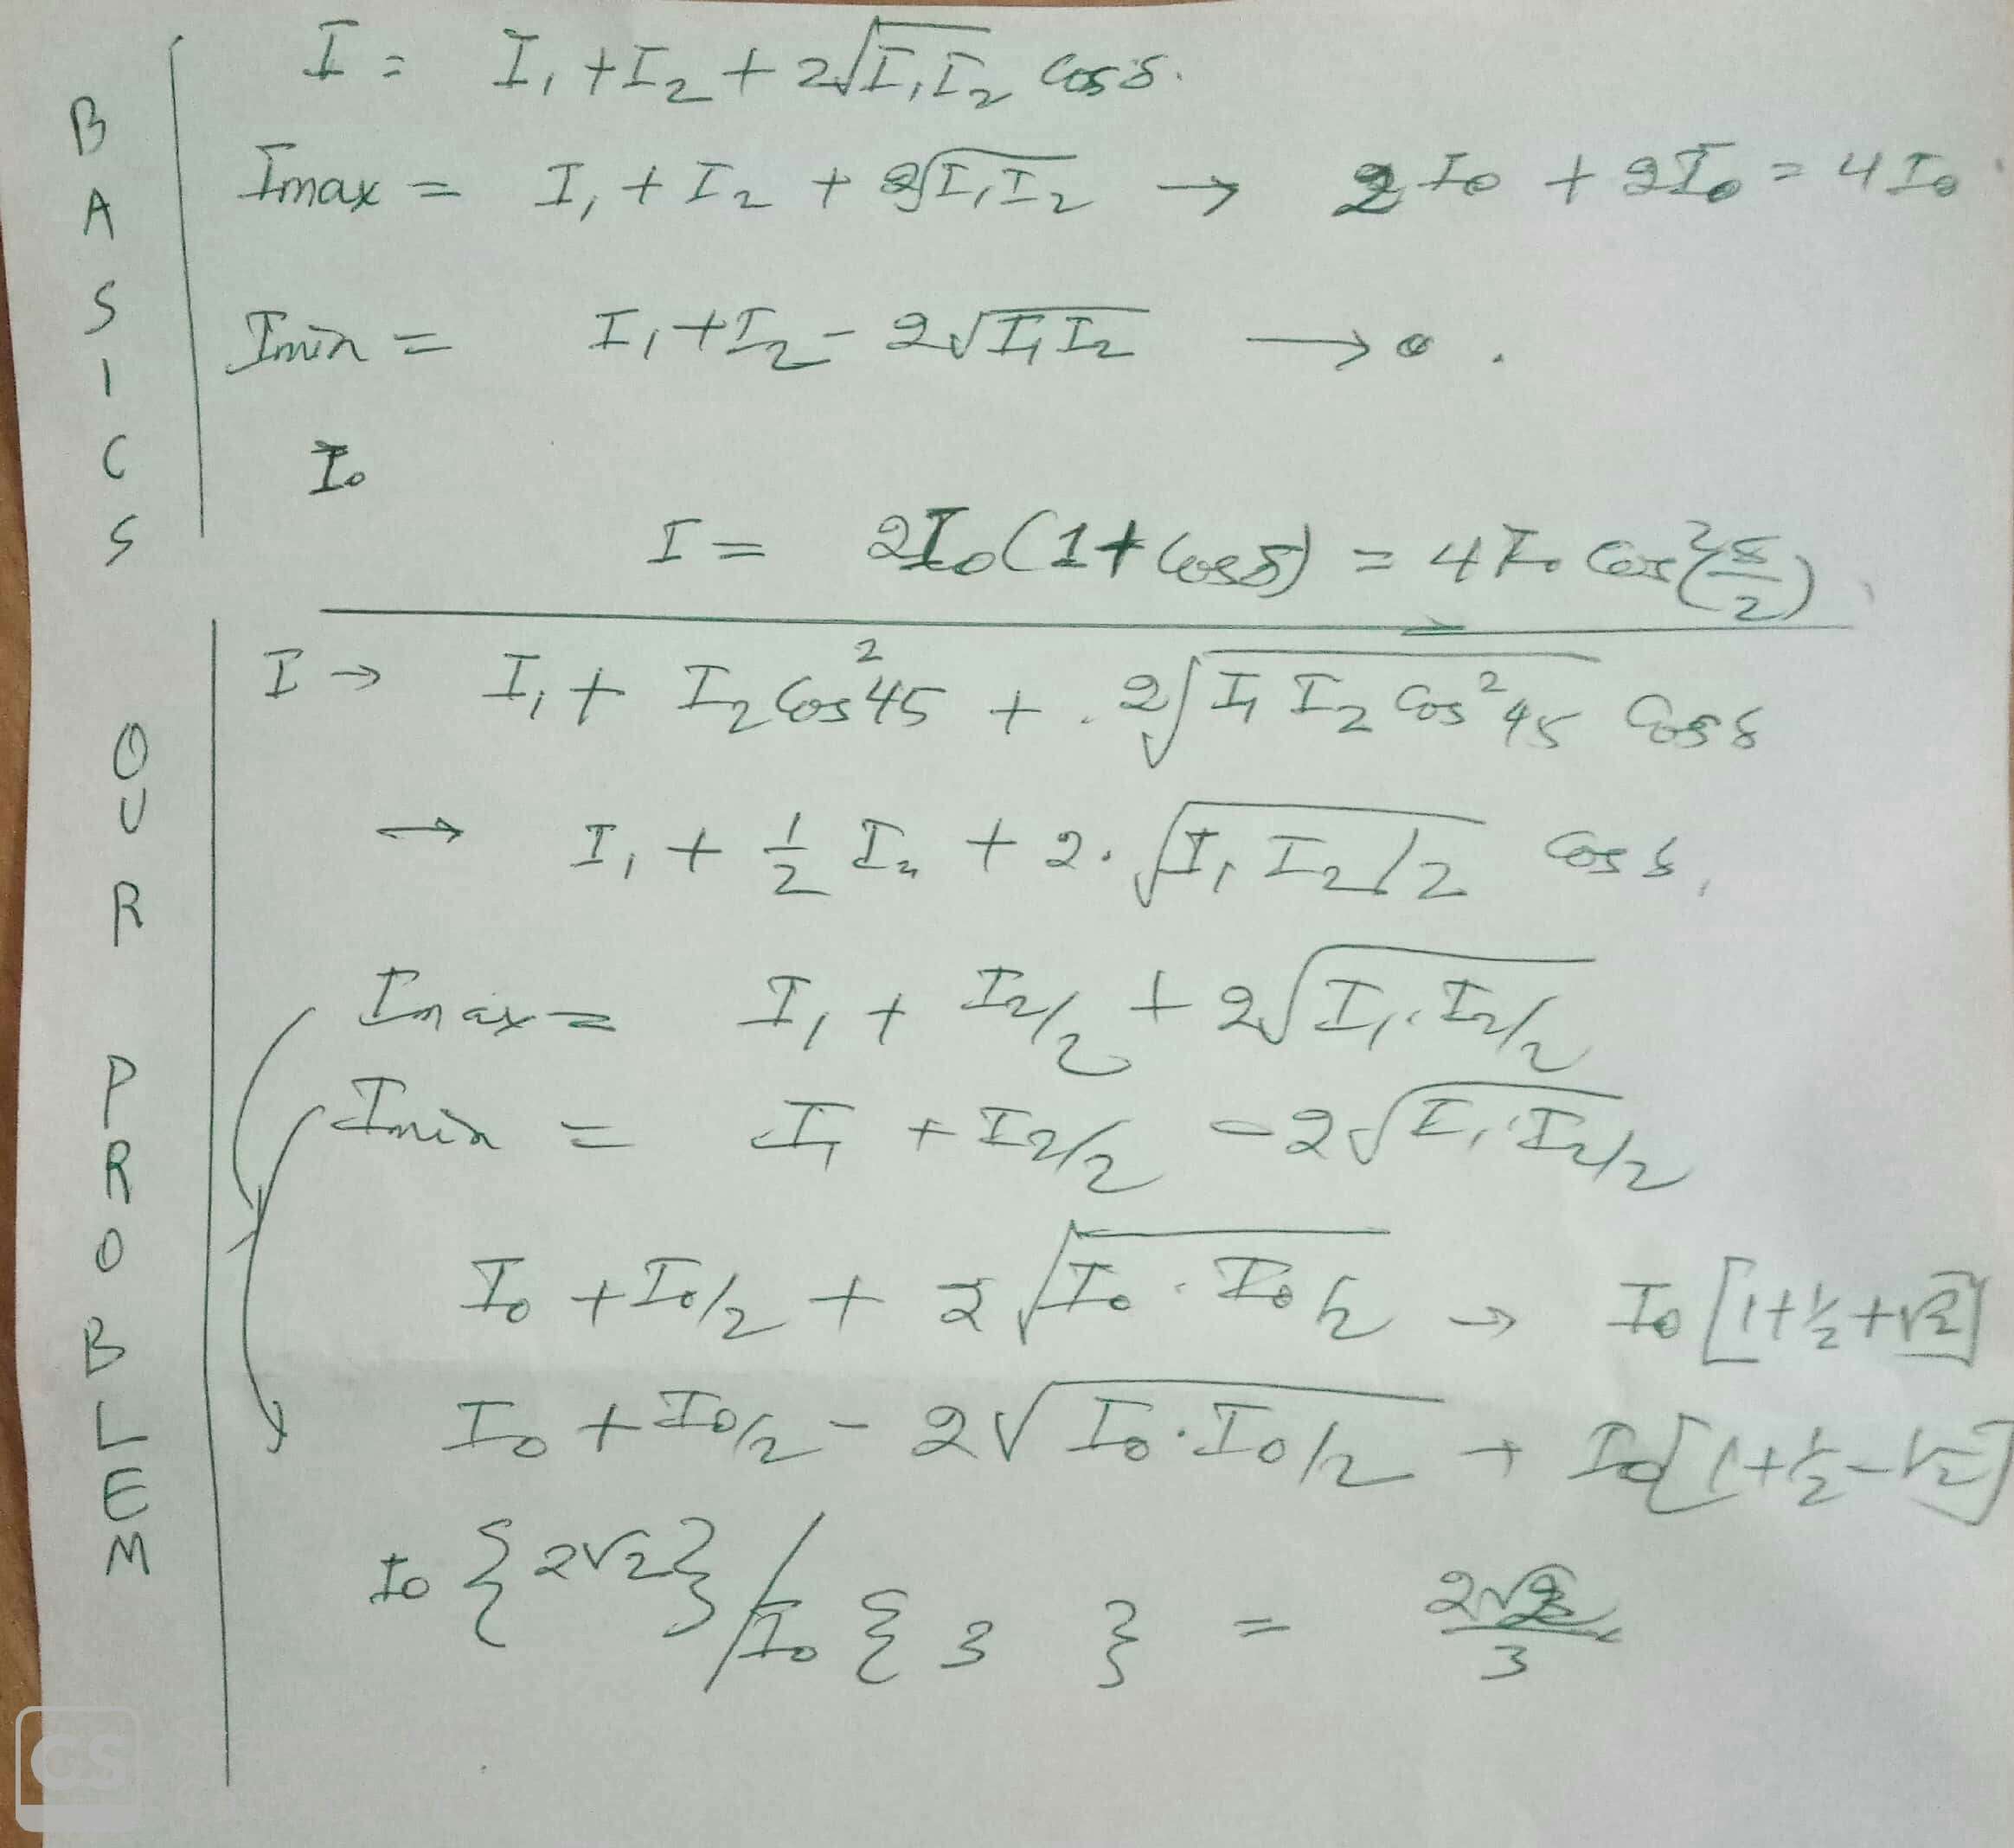 BASICS
I = I₁ + I₂ + 2√(I₁I₂) Cos δ.
Imax = I₁ + I₂ + 2√(I₁I₂) → 2I₀ + 2I₀ = 4I₀
Imin = I₁ + I₂ - 2√(I₁I₂) → 0.
I₀
I = 2I₀(1 + Cosδ) = 4I₀ Cos²(δ/2)
OUR PROBLEM
I → I₁ + I₂ Cos²45 + 2√(I₁I₂ Cos²45) Cos δ
→ I₁ + 1/2 I₂ + 2.√(I₁I₂/2) Cos δ,
Imax = I₁ + I₂/2 + 2√(I₁.I₂/2)
Imin = I₁ + I₂/2 - 2√(I₁.I₂/2)
I₀ + I₀/2 + 2√(I₀.I₀/2) → I₀[1+1/2+√2]
I₀ + I₀/2 - 2√(I₀.I₀/2) → I₀[1+1/2-√2]
I₀{2√2}/I₀{3} = 2√2/3
GS